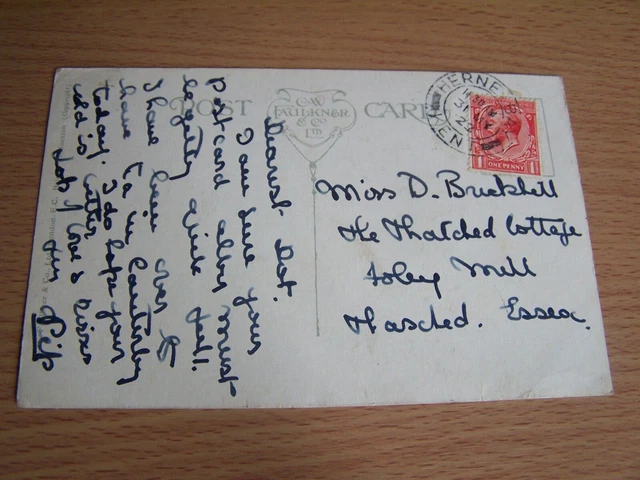 POST CARD
C.W. FAULKNER & CO LTD
HERNE
KENT
ONE PENNY
Dearest Dot.
I am sure your
Postcard album must
be getting quite full.
I have been over to
have tea in Canterbury
today. I do hope your
cold is better
Lots of love & kisses
from Pip
Miss D. Bricknell
The Thatched Cottage
Foley Mill
Halsted. Essex.